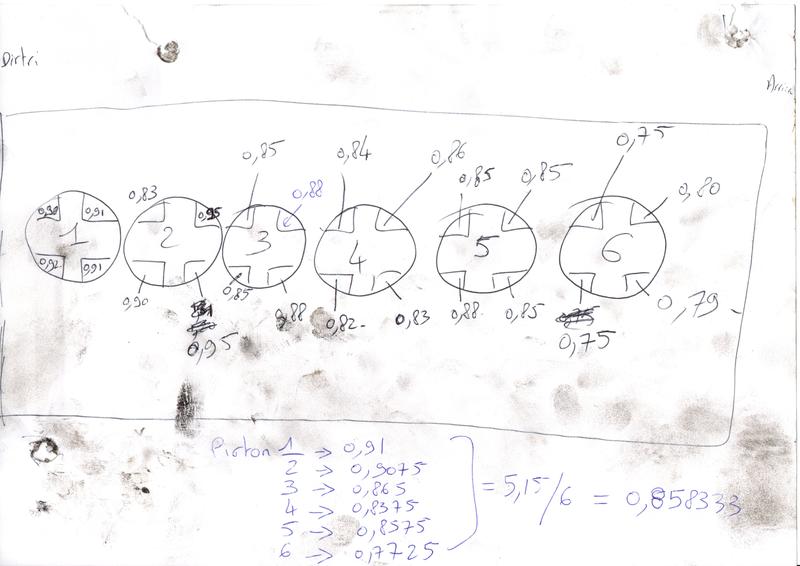 Distri
Arrière
0,85 0,84 0,86 0,75
0,83 0,88 0,85 0,85 0,80
0,90 0,91 0,95
1 2 3 4 5 6
0,92 0,91
0,90 0,85 0,88 0,82 0,83 0,88 0,85 0,79
0,95 0,75
Piston 1 → 0,91
2 → 0,9075
3 → 0,865
4 → 0,8375
5 → 0,8575
6 → 0,7725
= 5,15/6 = 0,858333